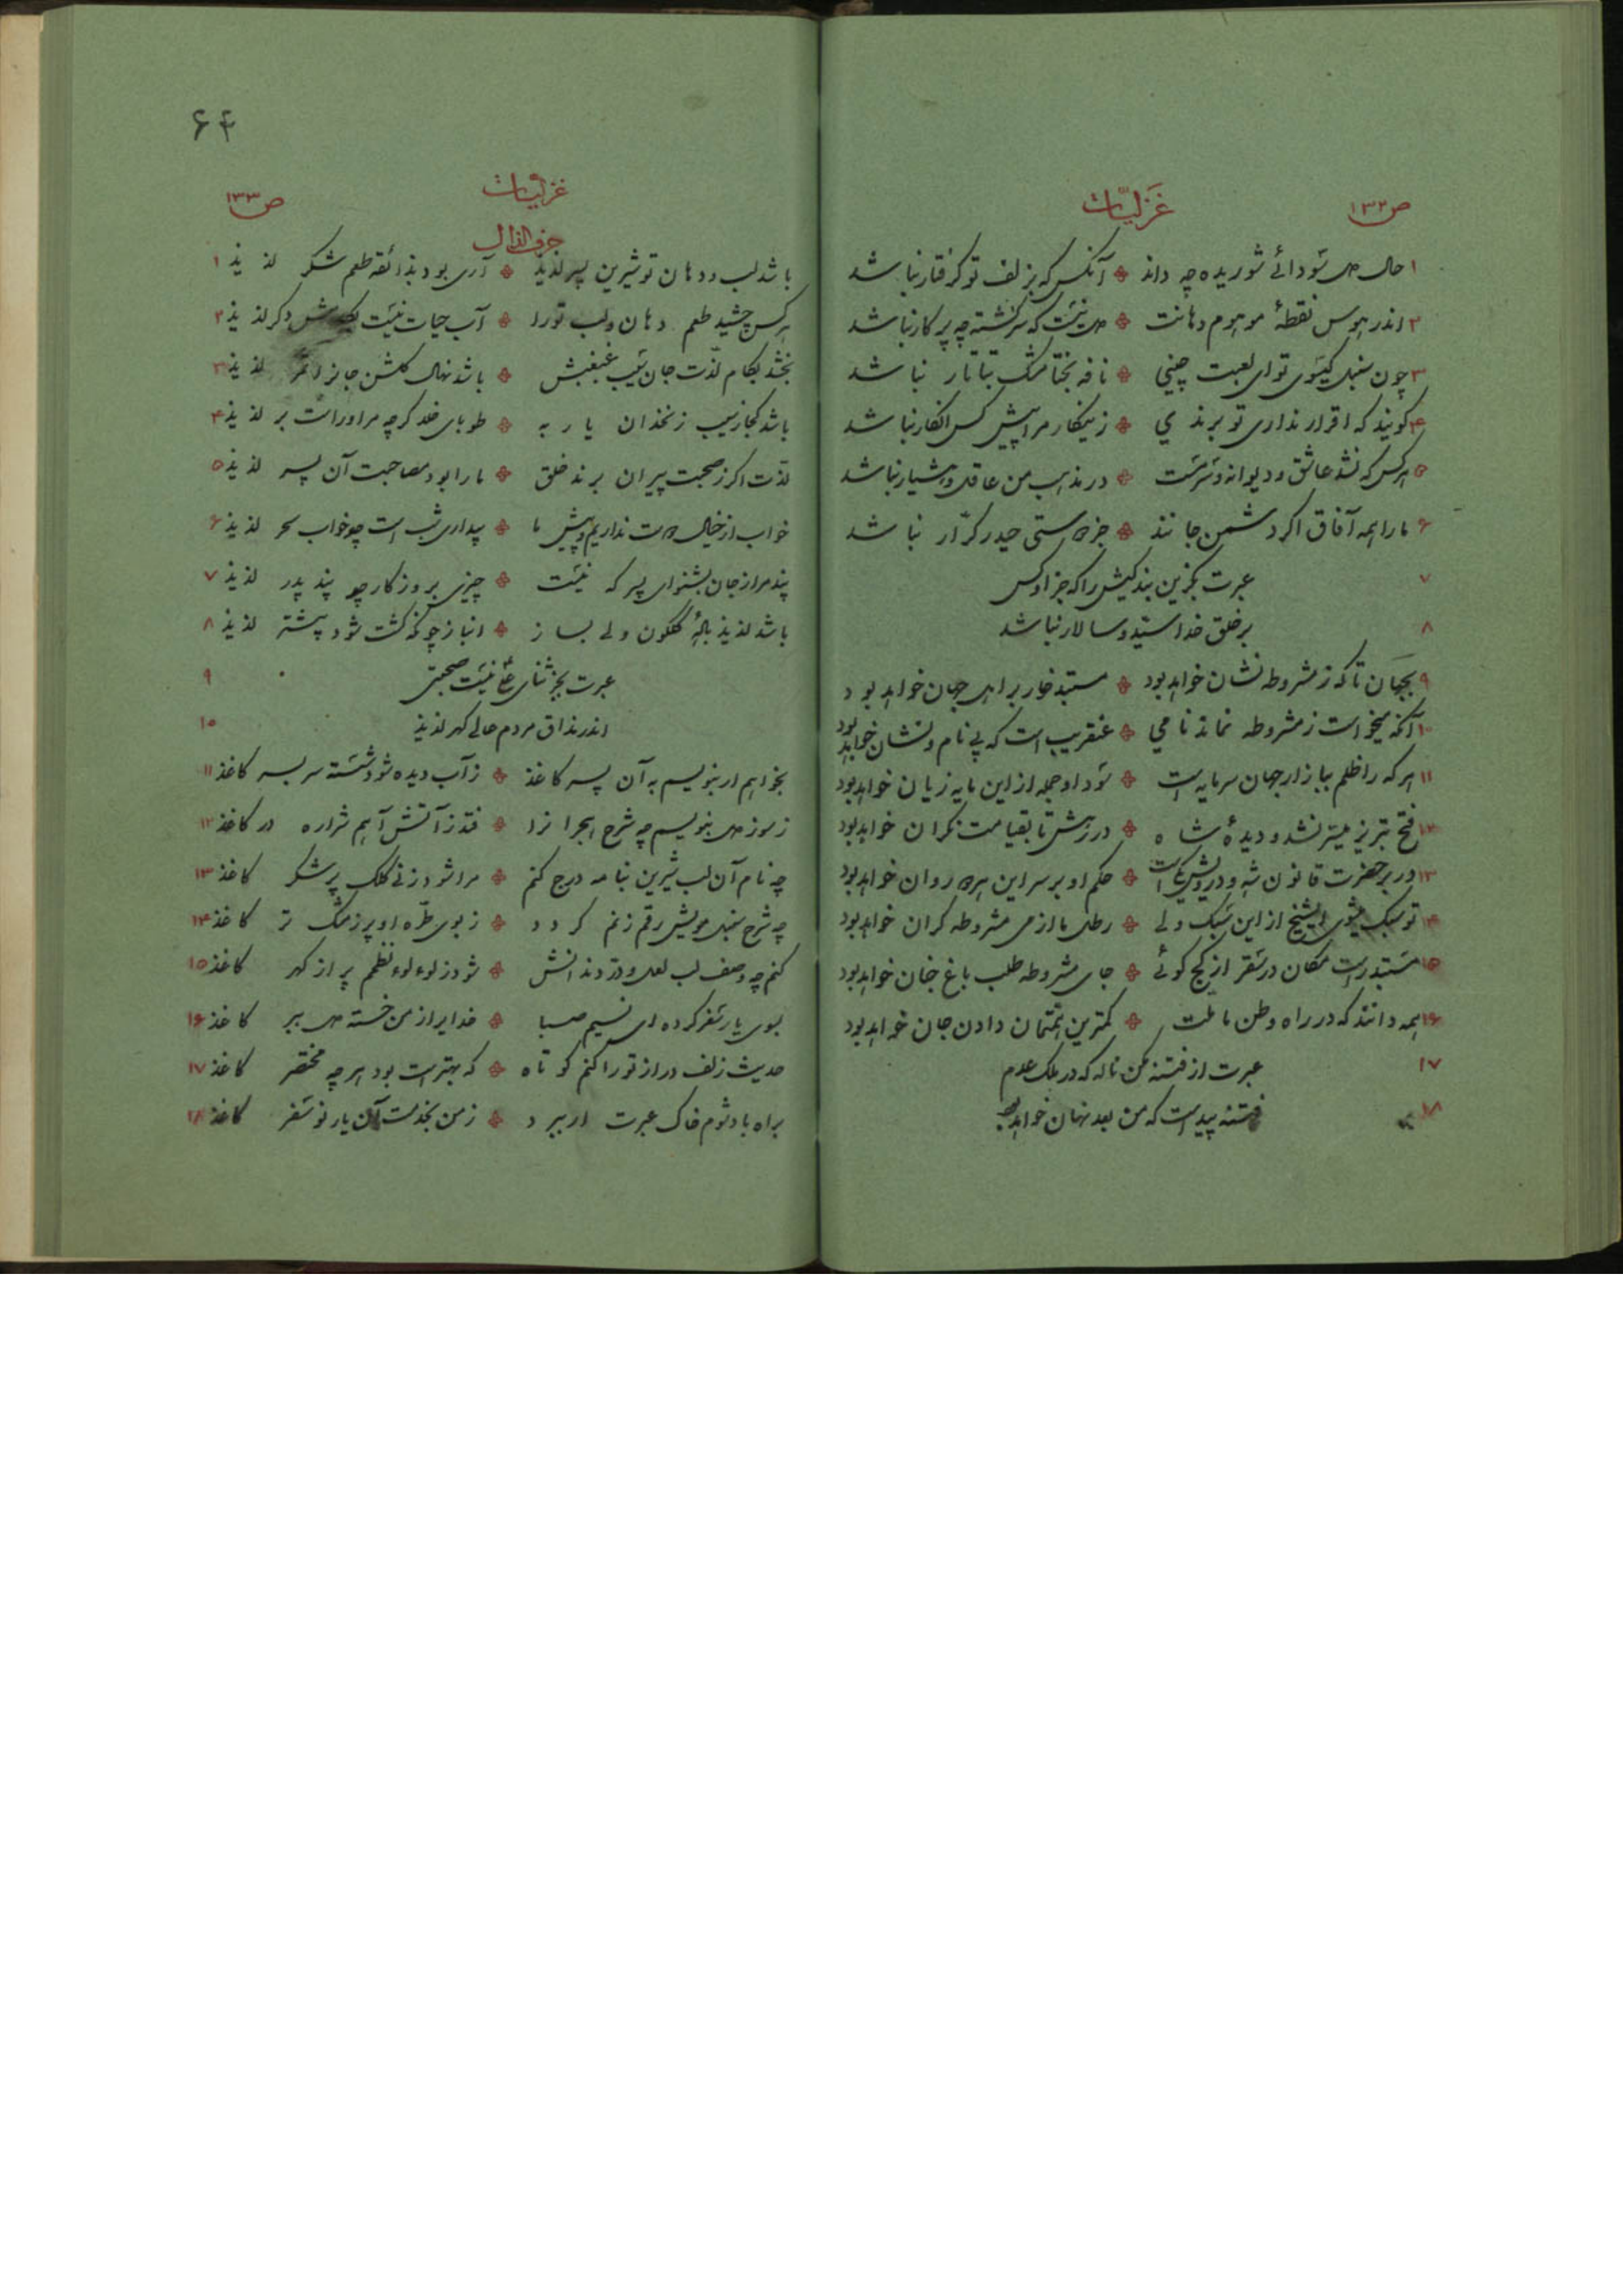 ص۱۳۲
غزلیّات
۱ حال دل سودائے شوریده چه داند آنکس که بزلف تو گرفتار نباشد
۲ اندر هوس نقطهٔ موهوم دهانت دل نیست که سرگشته چه پرکار نباشد
۳ چون سنبل گیسوی تو ای لعبت چینی نافه بختا مشک بتاتار نباشد
۴ گویند که اقرار نداری تو برندی زینکار مرا پیش کس انکار نباشد
۵ هر کس که نشد عاشق و دیوانه و سرمست در مذهب من عاقل و هشیار نباشد
۶ ما را همه آفاق اگر دشمن جانند جز دوستی حیدر کرّار نباشد
۷ عبرت بگزین بندگیش را که جز او کس
۸ بر خلق خدا سیّد و سالار نباشد
۹ بجهان تا که ز مشروطه نشان خواهد بود مستبد خوار بر اهل جهان خواهد بود
۱۰ آنکه میخواست ز مشروطه نماند نامی عنقریب است که بی نام و نشان خواهد بود
۱۱ هر که را ظلم ببازار جهان سرمایه است سود او جمله از این مایه زیان خواهد بود
۱۲ فتح تبریز میسّر نشد و دیدهٔ شاه در رهش تا بقیامت نگران خواهد بود
۱۳ در بر حضرت قانون شه و درویش یکیست حکم او بر سر این هر دو روان خواهد بود
۱۴ تو سبک میشوی ایشیخ از این سبک ولی رطل ما از می مشروطه گران خواهد بود
۱۵ مستبد راست مکان در سقر از کج گوئے جای مشروطه طلب باغ جنان خواهد بود
۱۶ همه دانند که در راه وطن ما ملّت کمترین همّتمان دادن جان خواهد بود
۱۷ عبرت از فتنه مکن ناله که در ملک عدم
۱۸ فتنه پیداست که من بعد نهان خواهد بود
۶۴
ص۱۳۳
غزلیات
حرف الذال
باشد لب و دهان تو شیرین پسر لذیذ آری بود بذائقه طعم شکر لذیذ ۱
هر کس چشید طعم دهان و لب تو را آب حیات نیست دگر لذیذ ۲
بخشد بکام لذّت جان سیب غبغبش باشد نهال گلشن جانرا ثمر لذیذ ۳
باشد کجا ز سیب زنخدان یار به طوبای خلد گرچه مر او راست بر لذیذ ۴
لذّت اگر ز صحبت پیران برند خلق ما را بود مصاحبت آن پسر لذیذ ۵
خواب از خیال دوست نداریم و پیش ما بیداری شب است چو خواب سحر لذیذ ۶
پند مرا ز جان بشنو ای پسر که نیست چیزی بروزگار چو پند پدر لذیذ ۷
باشد لذیذ بادهٔ گلگون ولی بساز انباز چونکه گشت شود بیشتر لذیذ ۸
عبرت بجز ثنای علی نیست صحبتی ۹
اندر مذاق مردم عالی گهر لذیذ ۱۰
بخواهم ار بنویسم به آن پسر کاغذ ز آب دیده شود شسته سر بسر کاغذ ۱۱
ز سوز دل بنویسم چه شرح هجرانرا فتد ز آتش آهم شراره در کاغذ ۱۲
چه نام آن لب شیرین بنامه درج کنم مرا شود ز نی کلک پر شکر کاغذ ۱۳
چه شرح سنبل مویش رقم زنم گردد ز بوی طرّه او پر ز مشک تر کاغذ ۱۴
کنم چه وصف لب لعل و درّ دندانش شود ز لوءلوء نظمم پر از گهر کاغذ ۱۵
بسوی یار سفر کرده ای نسیم صبا خدایرا ز من خسته دل ببر کاغذ ۱۶
حدیث زلف دراز تو را کنم کوتاه که بهتر است بود هر چه مختصر کاغذ ۱۷
براه باد شوم خاک عبرت ار ببرد ز من بخدمت آن یار نو سفر کاغذ ۱۸